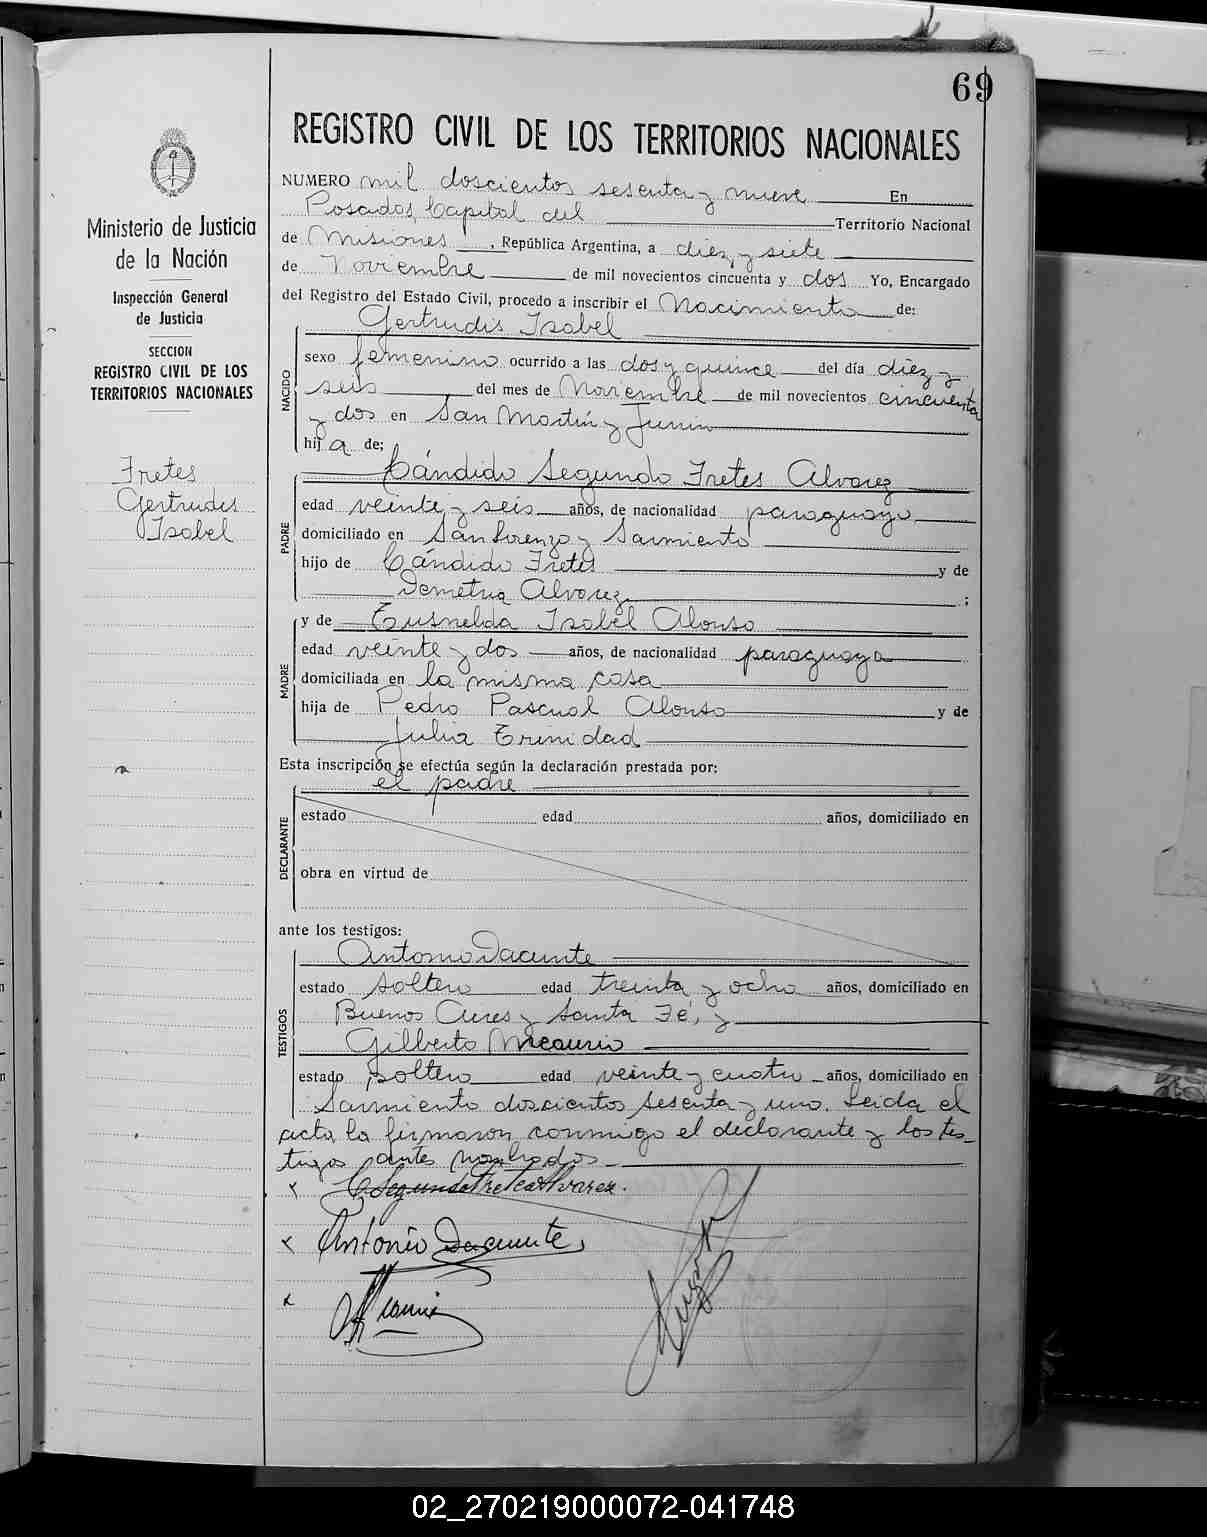 69
REGISTRO CIVIL DE LOS TERRITORIOS NACIONALES
Ministerio de Justicia
de la Nación
Inspección General
de Justicia
SECCION
REGISTRO CIVIL DE LOS
TERRITORIOS NACIONALES
Fretes
Gertrudis
Isabel
NUMERO mil doscientos sesenta y nueve En
Posadas, Capital del Territorio Nacional
de Misiones, República Argentina, a diez y siete
de Noviembre de mil novecientos cincuenta y dos Yo, Encargado
del Registro del Estado Civil, procedo a inscribir el Nacimiento de:
NACIDO
Gertrudis Isabel
sexo femenino ocurrido a las dos y quince del día diez y
seis del mes de Noviembre de mil novecientos cincuenta
y dos en San Martín y Junín
hija de;
PADRE
Cándido Segundo Fretes Alvarez
edad veinte y seis años, de nacionalidad paraguayo
domiciliado en San Lorenzo y Sarmiento
hijo de Cándido Fretes y de
Demetria Alvarez ;
MADRE
y de Tusnelda Isabel Alonso
edad veinte y dos años, de nacionalidad paraguaya
domiciliada en la misma casa
hija de Pedro Pascual Alonso y de
Julia Trinidad
Esta inscripción se efectúa según la declaración prestada por:
el padre
DECLARANTE
estado edad años, domiciliado en
obra en virtud de
ante los testigos:
TESTIGOS
Antonio Dacunte
estado soltero edad treinta y ocho años, domiciliado en
Buenos Aires y Santa Fé, y
Gilberto
estado soltero edad veinte y cuatro años, domiciliado en
Sarmiento doscientos sesenta y uno. Leida el
acta la firmaron conmigo el declarante y los tes-
tigos antes nombrados
C Segundo Fretes Alvarez.
Antonio Dacunte
02_270219000072-041748